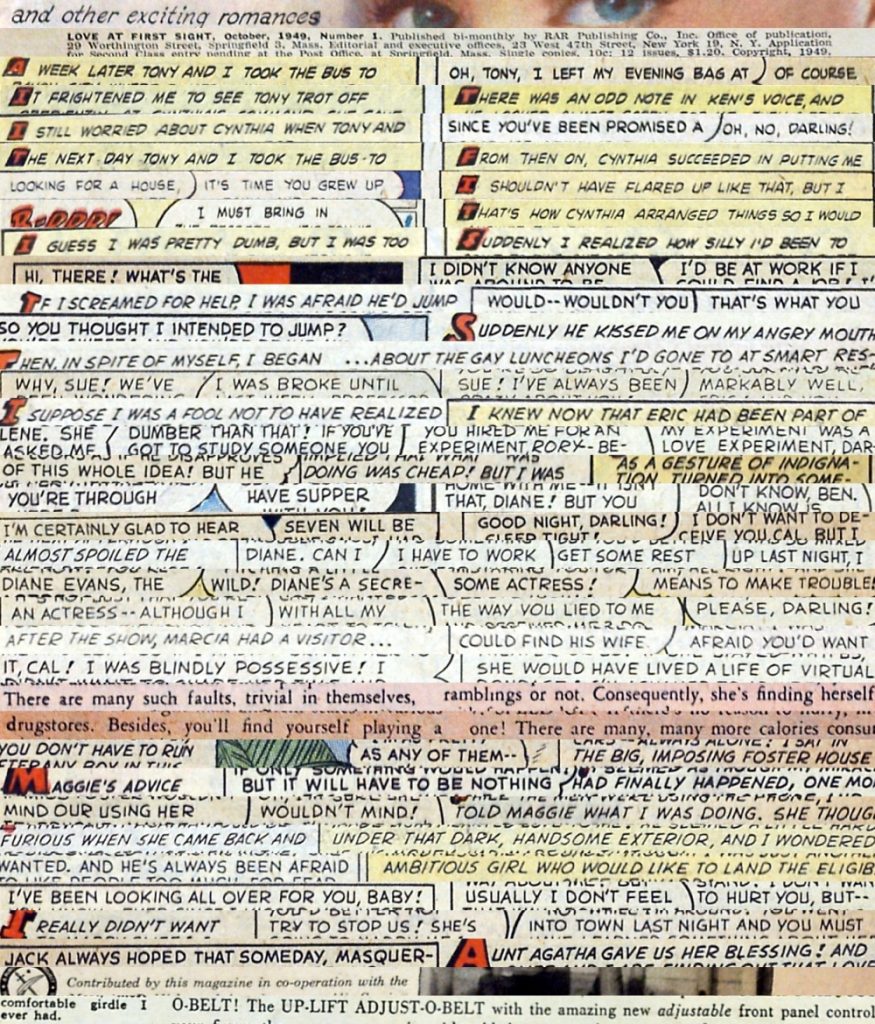 and other exciting romances
LOVE AT FIRST SIGHT, October, 1949, Number 1. Published bi-monthly by RAR Publishing Co., Inc. Office of publication,
29 Worthington Street, Springfield 3, Mass. Editorial and executive offices, 23 West 47th Street, New York 19, N. Y. Application
for Second Class entry pending at the Post Office, at Springfield, Mass. Single copies, 10c; 12 issues, $1.20. Copyright, 1949.
A WEEK LATER TONY AND I TOOK THE BUS TO OH, TONY, I LEFT MY EVENING BAG AT OF COURSE
IT FRIGHTENED ME TO SEE TONY TROT OFF THERE WAS AN ODD NOTE IN KEN'S VOICE, AND
I STILL WORRIED ABOUT CYNTHIA WHEN TONY AND SINCE YOU'VE BEEN PROMISED A OH, NO, DARLING!
THE NEXT DAY TONY AND I TOOK THE BUS TO FROM THEN ON, CYNTHIA SUCCEEDED IN PUTTING ME
LOOKING FOR A HOUSE, IT'S TIME YOU GREW UP I SHOULDN'T HAVE FLARED UP LIKE THAT, BUT I
I MUST BRING IN THAT'S HOW CYNTHIA ARRANGED THINGS SO I WOULD
I GUESS I WAS PRETTY DUMB, BUT I WAS TOO SUDDENLY I REALIZED HOW SILLY I'D BEEN TO
HI, THERE! WHAT'S THE I DIDN'T KNOW ANYONE I'D BE AT WORK IF I
IF I SCREAMED FOR HELP, I WAS AFRAID HE'D JUMP WOULD--WOULDN'T YOU THAT'S WHAT YOU
SO YOU THOUGHT I INTENDED TO JUMP? SUDDENLY HE KISSED ME ON MY ANGRY MOUTH
THEN, IN SPITE OF MYSELF, I BEGAN ...ABOUT THE GAY LUNCHEONS I'D GONE TO AT SMART RES-
WHY, SUE! WE'VE I WAS BROKE UNTIL SUE! I'VE ALWAYS BEEN MARKABLY WELL,
I SUPPOSE I WAS A FOOL NOT TO HAVE REALIZED I KNEW NOW THAT ERIC HAD BEEN PART OF
LENE. SHE DUMBER THAN THAT! IF YOU'VE YOU HIRED ME FOR AN MY EXPERIMENT WAS A
ASKED ME GOT TO STUDY SOMEONE, YOU EXPERIMENT RORY--BE- LOVE EXPERIMENT, DAR-
OF THIS WHOLE IDEA! BUT HE DOING WAS CHEAP! BUT I WAS AS A GESTURE OF INDIGNA-
TION TURNED INTO SOME-
YOU'RE THROUGH HAVE SUPPER THAT, DIANE! BUT YOU DON'T KNOW, BEN.
ALL I KNOW IS
I'M CERTAINLY GLAD TO HEAR SEVEN WILL BE GOOD NIGHT, DARLING! I DON'T WANT TO DE-
SLEEP TIGHT! CEIVE YOU, CAL, BUT I
ALMOST SPOILED THE DIANE. CAN I I HAVE TO WORK GET SOME REST UP LAST NIGHT, I
DIANE EVANS, THE WILD! DIANE'S A SECRE- SOME ACTRESS! MEANS TO MAKE TROUBLE!
AN ACTRESS--ALTHOUGH I WITH ALL MY THE WAY YOU LIED TO ME PLEASE, DARLING!
AFTER THE SHOW, MARCIA HAD A VISITOR... COULD FIND HIS WIFE AFRAID YOU'D WANT
IT, CAL! I WAS BLINDLY POSSESSIVE! I SHE WOULD HAVE LIVED A LIFE OF VIRTUAL
There are many such faults, trivial in themselves, ramblings or not. Consequently, she's finding herself
drugstores. Besides, you'll find yourself playing a one! There are many, many more calories consu
YOU DON'T HAVE TO RUN AS ANY OF THEM-- THE BIG, IMPOSING FOSTER HOUSE
MAGGIE'S ADVICE BUT IT WILL HAVE TO BE NOTHING HAD FINALLY HAPPENED, ONE MO
MIND OUR USING HER WOULDN'T MIND! TOLD MAGGIE WHAT I WAS DOING. SHE THOUG
FURIOUS WHEN SHE CAME BACK AND UNDER THAT DARK, HANDSOME EXTERIOR, AND I WONDERED
WANTED. AND HE'S ALWAYS BEEN AFRAID AMBITIOUS GIRL WHO WOULD LIKE TO LAND THE ELIGIB
I'VE BEEN LOOKING ALL OVER FOR YOU, BABY! USUALLY I DON'T FEEL TO HURT YOU, BUT--
I REALLY DIDN'T WANT TRY TO STOP US! SHE'S INTO TOWN LAST NIGHT AND YOU MUST
JACK ALWAYS HOPED THAT SOMEDAY, MASQUER- AUNT AGATHA GAVE US HER BLESSING! AND
Contributed by this magazine in co-operation with the
comfortable girdle I O-BELT! The UP-LIFT ADJUST-O-BELT with the amazing new adjustable front panel control
ever had.